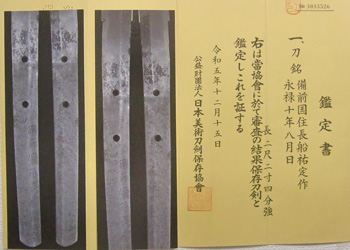 鑑定書
一、刀 銘 備前国住長船祐定作
永禄十年八月日
長 二尺二寸四分強
右は當協會に於て審査の結果保存刀剣と
鑑定しこれを証する
令和五年十二月十五日
公益財團法人 日本美術刀剣保存協會